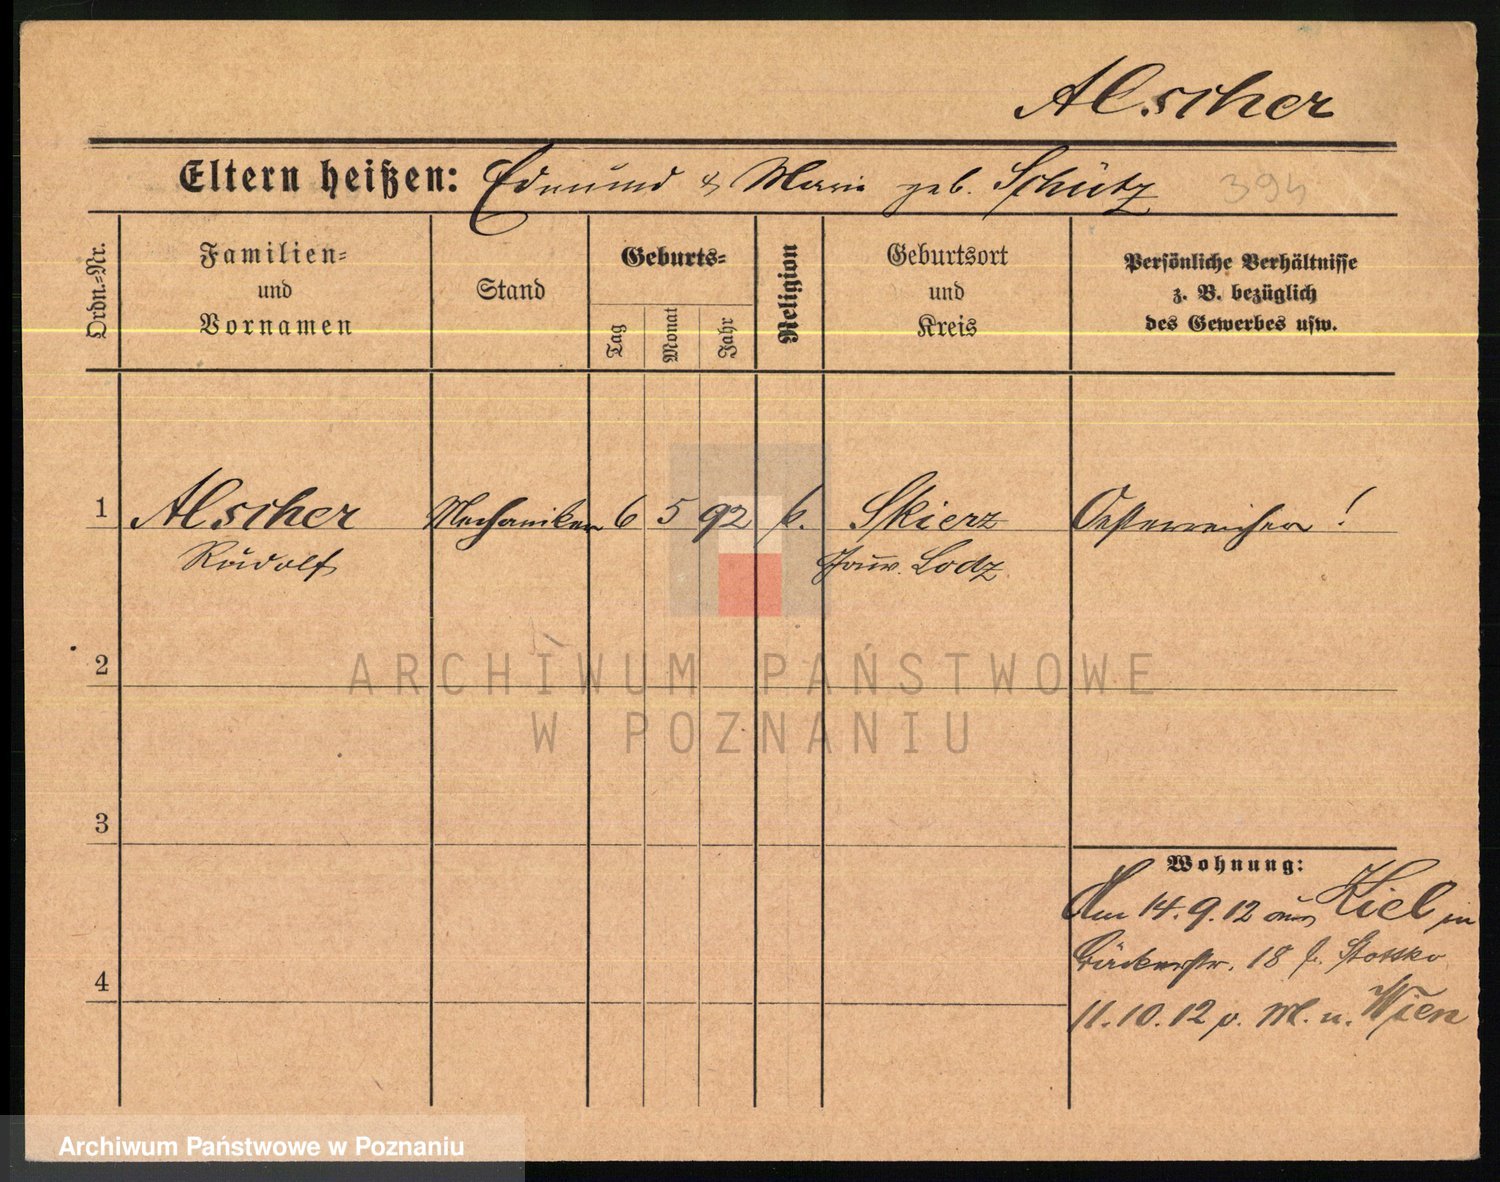 Alscher
Eltern heißen: Edmund & Marie geb. Schütz 394
Ordn.-Nr.
Familien=
und
Vornamen
Stand
Geburts=
Tag
Monat
Jahr
Religion
Geburtsort
und
Kreis
Persönliche Verhältnisse
z. B. bezüglich
des Gewerbes usw.
1 Alscher Mechaniker 6 5 92 k. Skierz Oesterreicher !
Rudolf Gouv. Lodz
2
ARCHIWUM PAŃSTWOWE
W POZNANIU
3
Wohnung:
Am 14.9.12 aus Kiel in
Bäckerstr. 18 b.
4
11.10.12 v. M. n. Wien
Archiwum Państwowe w Poznaniu